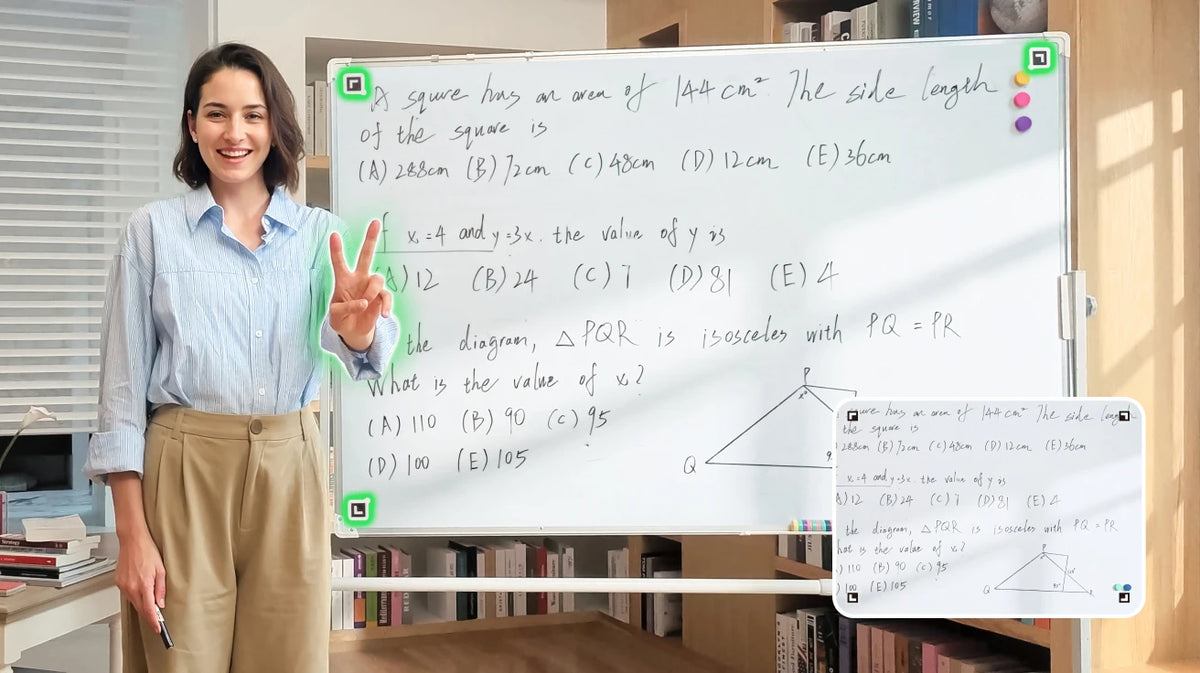 A squre has an area of 144 cm² The side length
of the square is
(A) 288cm (B) 72cm (C) 48cm (D) 12cm (E) 36cm
f x=4 and y=3x. the value of y is
A) 12 (B) 24 (C) 7 (D) 81 (E) 4
the diagram, △PQR is isosceles with PQ = PR
What is the value of x?
(A) 110 (B) 90 (C) 95
(D) 100 (E) 105
P
x°
Q
9
ure has an area of 144 cm² The side length
the square is
288cm (B) 72cm (C) 48cm (D) 12cm (E) 36cm
x=4 and y=3x. the value of y is
A) 12 (B) 24 (C) 7 (D) 81 (E) 4
the diagram, △PQR is isosceles with PQ = PR
hat is the value of x?
) 110 (B) 90 (C) 95
) 100 (E) 105
P
Q
R